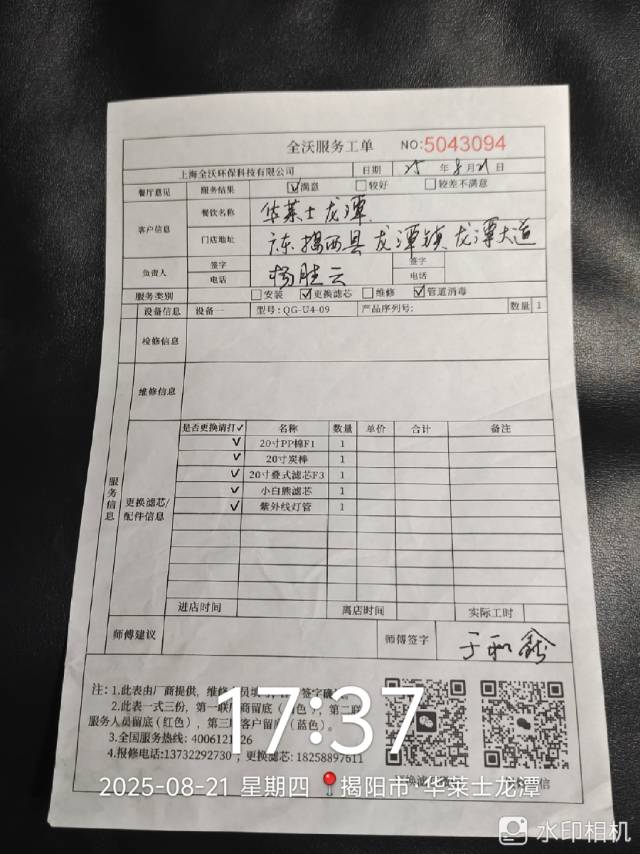 全沃服务工单 NO:5043094
上海全沃环保科技有限公司 日期 25 年 8 月 21 日
餐厅意见 服务结果 ☑满意 □较好 □较差不满意
客户信息 餐饮名称 华莱士龙潭
门店地址 广东揭西县龙潭镇龙潭大道
负责人 签字 杨胜云 签字
电话 电话
服务类别 □安装 ☑更换滤芯 □维修 ☑管道消毒
设备信息 设备一 型号:QG-U4-09 产品序列号: 数量 1
检修信息
维修信息
服务信息
更换滤芯/配件信息
是否更换请打✓ 名称 数量 单价 合计 备注
✓ 20寸PP棉F1 1
✓ 20寸炭棒 1
✓ 20寸叠式滤芯F3 1
✓ 小白熊滤芯 1
✓ 紫外线灯管 1
进店时间 离店时间 实际工时
师傅建议 师傅签字 于和鑫
注:1.此表由厂商提供,维修 签字确
2.此表一式三份,第一联厂商留底 色),第二联
服务人员留底(红色),第三 客户留 (蓝色)。
3.全国服务热线:4006121 26
4.报修电话:13732292730,更换滤芯:18258897611
17:37
2025-08-21 星期四 揭阳市·华莱士龙潭
水印相机